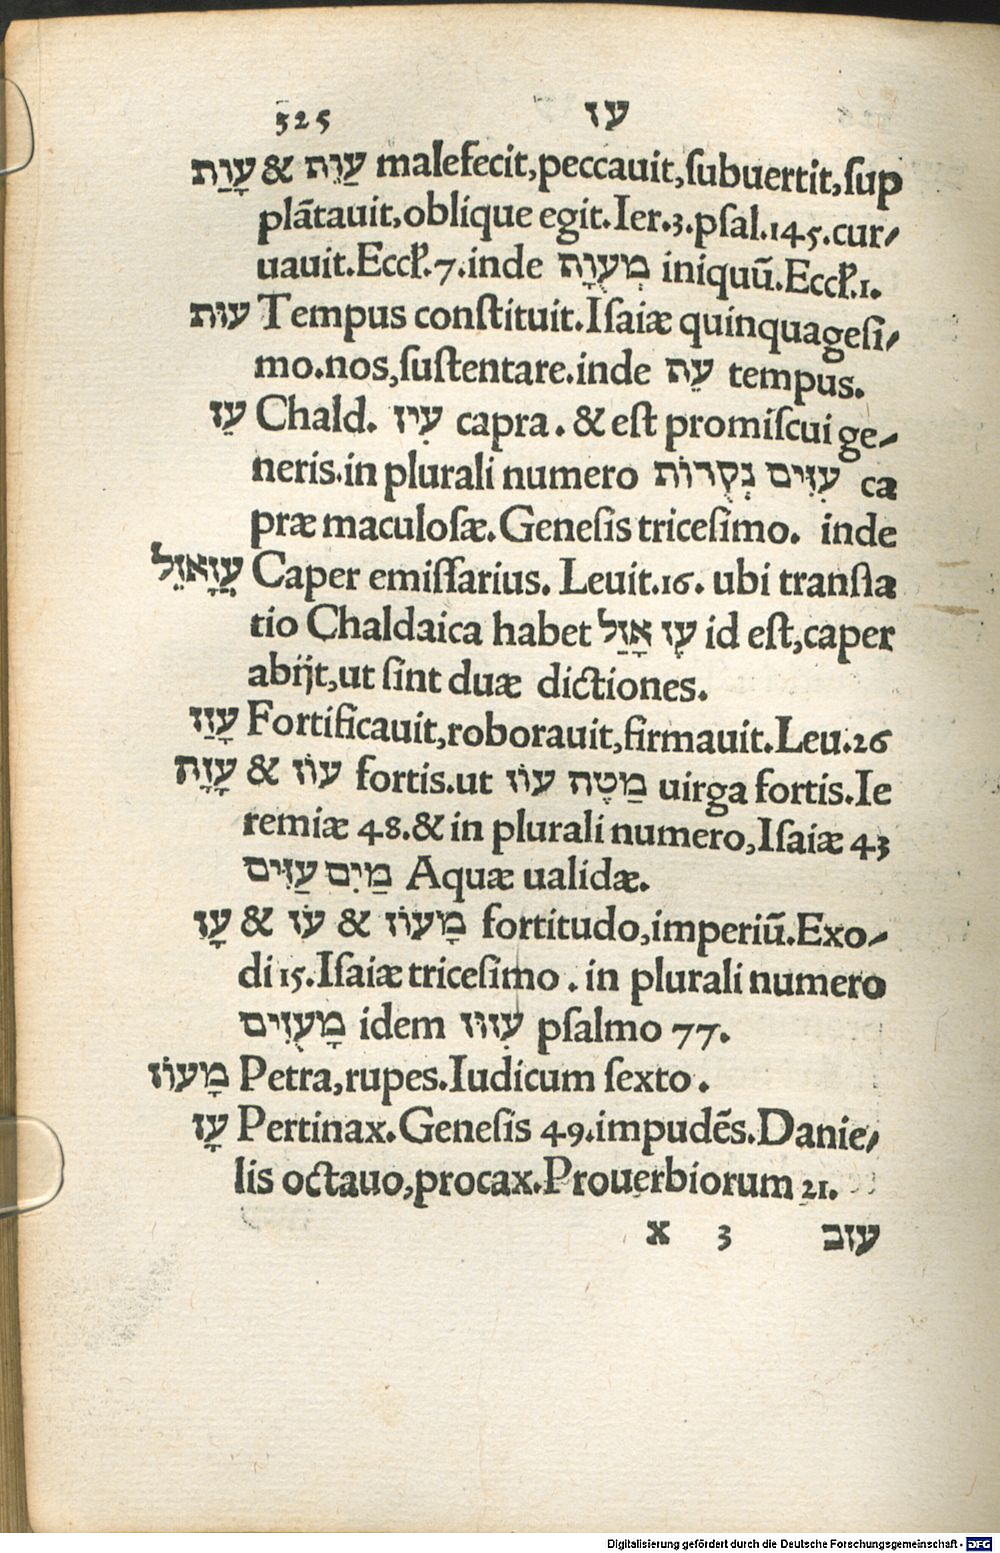 325 עז
עָוַת & עַוֵּת malefecit,peccauit,ſubuertit,ſup
plātauit,oblique egit.Ier.3.pſal.145.cur-
uauit.Eccl.7.inde מְעֻוָּת iniquū.Eccl.1.
עות Tempus conſtituit.Iſaiæ quinquageſi-
mo.nos,ſuſtentare.inde עֵת tempus.
עֵז Chald. עִיז capra. & eſt promiſcui ge-
neris.in plurali numero עִזִּים נְקֻדּוֹת ca
præ maculoſæ.Geneſis triceſimo. inde
עֲזָאזֵל Caper emiſſarius. Leuit.16. ubi tranſla
tio Chaldaica habet עֵז אָזַל id eſt,caper
abijt,ut ſint duæ dictiones.
עָזַז Fortificauit,roborauit,firmauit.Leu.26
עָזָה & עוֹז fortis.ut מַטֶּה עוֹז uirga fortis.Ie
remiæ 48.& in plurali numero,Iſaiæ 43
מַיִם עַזִּים Aquæ ualidæ.
עָז & עֹז & מָעוֹז fortitudo,imperiū.Exo-
di 15.Iſaiæ triceſimo. in plurali numero
מָעֻזִּים idem עִזּוּז pſalmo 77.
מָעוֹז Petra,rupes.Iudicum ſexto.
עָז Pertinax.Geneſis 49.impudēs.Danie-
lis octauo,procax.Prouerbiorum 21.
x 3 עזב
Digitalisierung gefördert durch die Deutsche Forschungsgemeinschaft - DFG